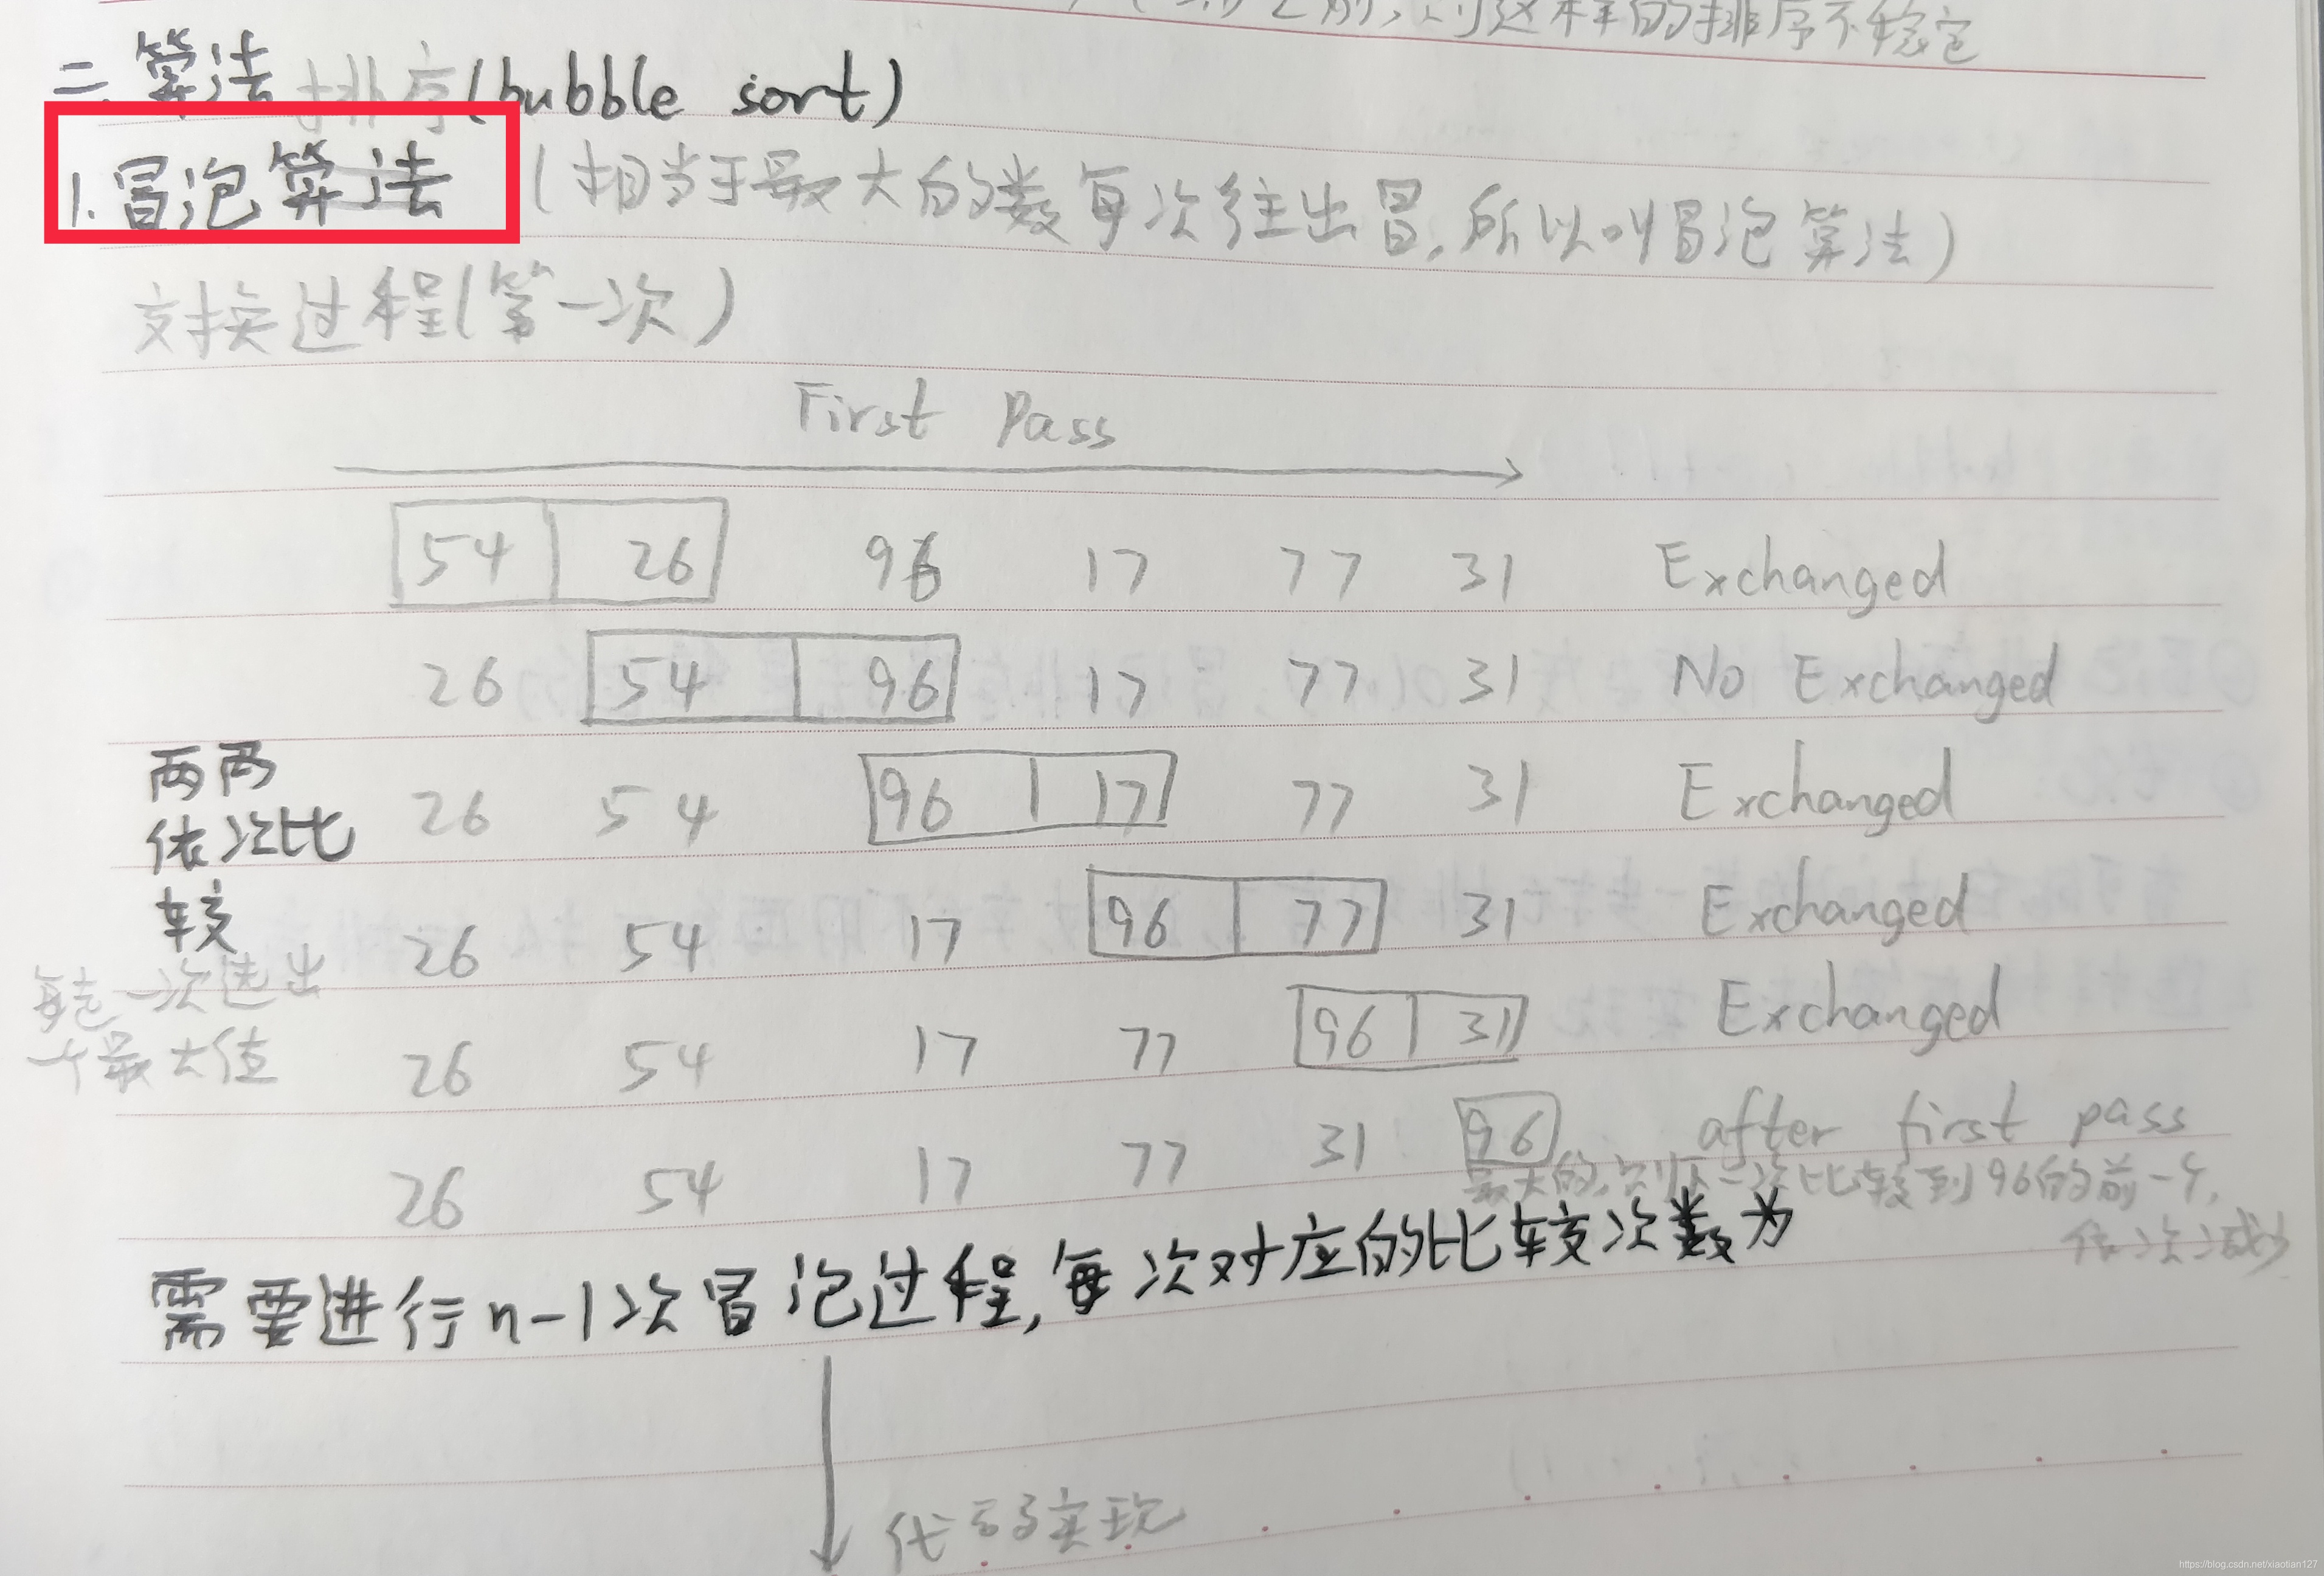 则这样的排序不稳定
二.算法排序(bubble sort)
1.冒泡算法(相当于最大的数每次往出冒,所以叫冒泡算法)
交换过程(第一次)
First Pass
54 26 96 17 77 31 Exchanged
26 54 96 17 77 31 No Exchanged
两两
依次比
较
26 54 96 17 77 31 Exchanged
26 54 17 96 77 31 Exchanged
每走一次选出
一个最大值
26 54 17 77 96 31 Exchanged
26 54 17 77 31 96 after first pass
最大的,则下一次比较到96的前一个,
依次减少
需要进行n-1次冒泡过程,每次对应的比较次数为
代码实现
https://blog.csdn.net/xiaotian127